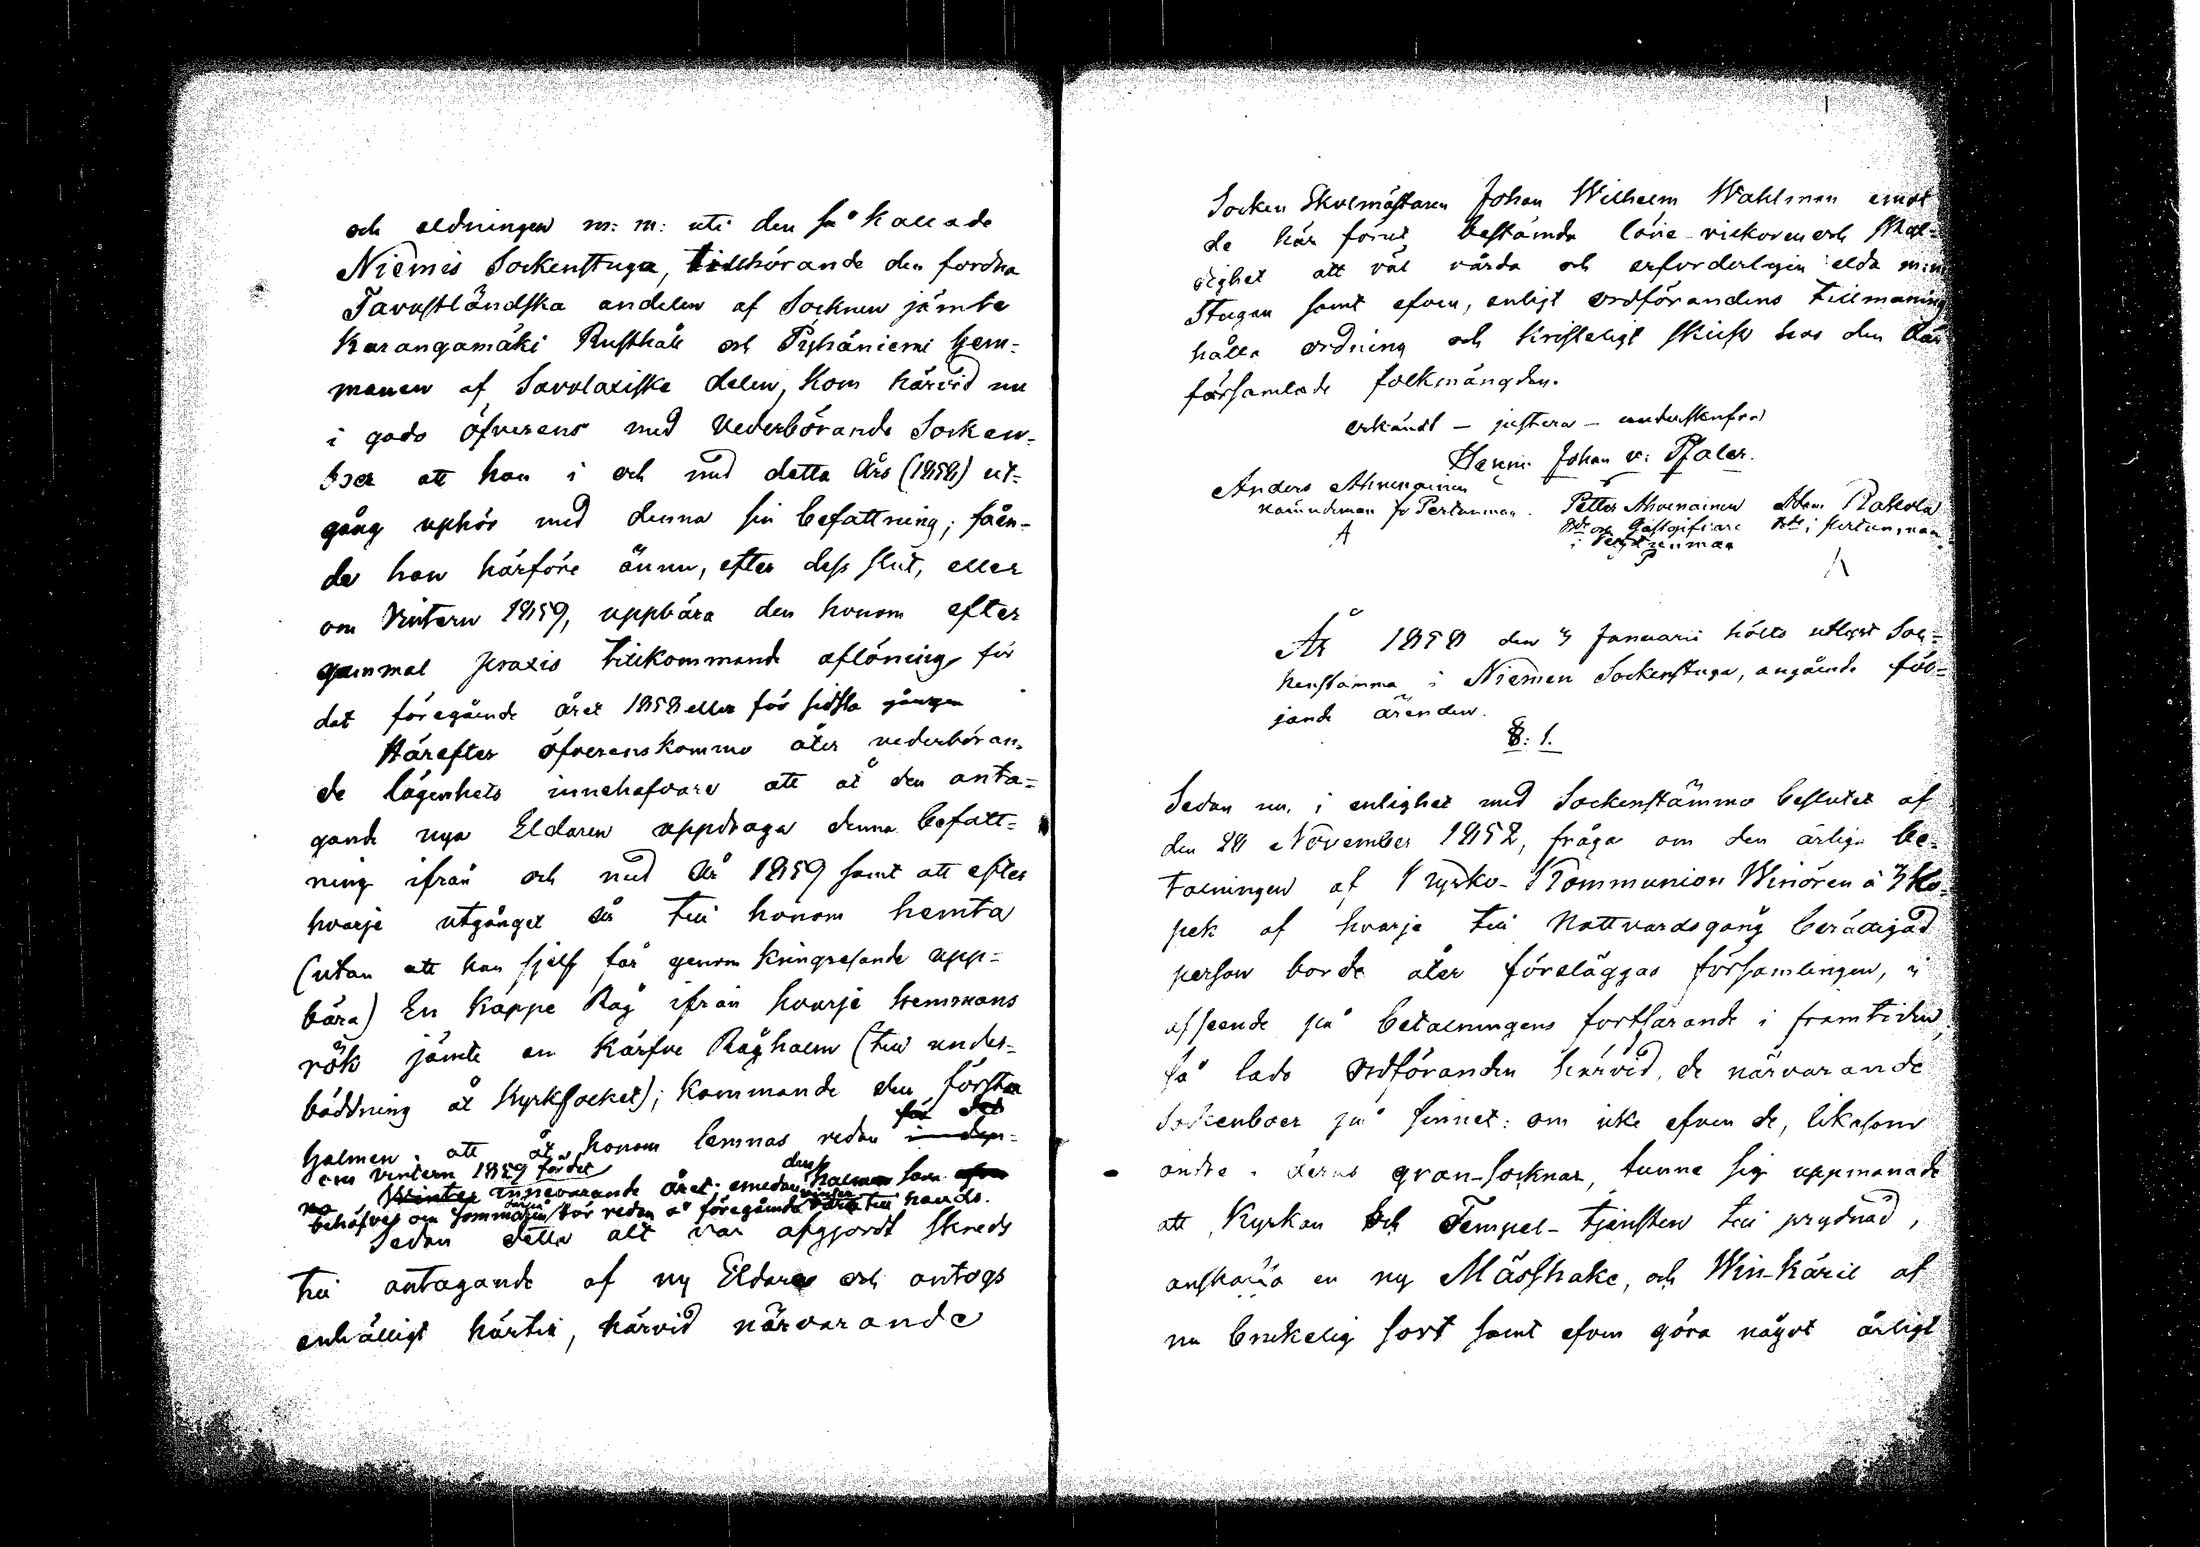 och eldningen m: m: uti den så kallade
Niemis Sockenstuga, tillhörande den fordna
Tavastländska andelen af Socknen jämte
Karangamäki Rusthåll och Pyhäniemi hem-
manen af Savolaxiska delen, kom härvid nu
i godo öfverens med Vederbörande Socken-
boer att han i och med detta Års (1858) ut-
gång uphör med denna sin befattning; fåen-
de han härföre ännu, efter dess slut, eller
om Vintern 1859, uppbära den honom efter
gammal praxis tillkommande aflöning för
det föregående året 1858 eller för sidsta gången
Härefter öfverenskommo åter vederböran-
de lägenhets innehafvare att åt den anta-
gande nya Eldaren uppdraga denna befatt-
ning ifrån och med År 1859 samt att efter
hvarje utgånget år till honom hemta
(utan att han sjelf får genom kringresande upp-
bära) En kappe Råg ifrån hvarje hemmans
rök jämte en kärfve Råghalm (till under-
bäddning åt Kyrkfolket); kommande den första
halmen att åt honom lemnas redan för det
om vintern 1859 för det
innevarande året; emedan halmen som
behöfves om sommaren bör redan å föregående vinter till hands.
Sedan detta allt var afgjordt skreds
till antagande af ny Eldare och antogs
enhälligt härtill, härvid närvarande
Socken Skolmästaren Johan Wilhelm Wahlman emot
de här förut bestämda löne-vilkoren och skyl-
dighet att väl vårda och erforderligen elda m:m
Stugan samt efven, enligt ordförandens tillmaning
hålla ordning och kristeligt skick hos den där
församlade folkmängden.
erkändt – justera – underskrefvo
Henric Johan v: Pfaler.
Anders Ahvenainen
nämndeman fr Pertunmaa. Petter Ahvenainen Adam Rakola
Bde och Gästgifvare Bde i Pertunmaa
i Pertunmaa
År 1858 den 3 Januarii hölts utlyst Soc-
kenstämma i Niemen Sockenstuga, angående föl-
jande ärenden.
§: 1.
Sedan nu, i enlighet med Sockenstämmo beslutet af
den 28 November 1852, fråga om den årliga be-
talningen af Kyrko-Kommunion Winören à 3 Ko-
pek af hvarje till Nattvardsgång berättigad
person borde åter föreläggas församlingen, i
afseende på betalningens fortfarande i framtiden,
så lade Ordföranden härvid, de närvarande
Sockenboer på sinnet: om icke efven de, likasom
andra i deras gran-socknar, funne sig uppmanade
att Kyrkan och Tempel-tjensten till prydnad,
anskaffa en ny Mässhake, och Win-käril af
nu brukelig sort samt efven göra något årligt